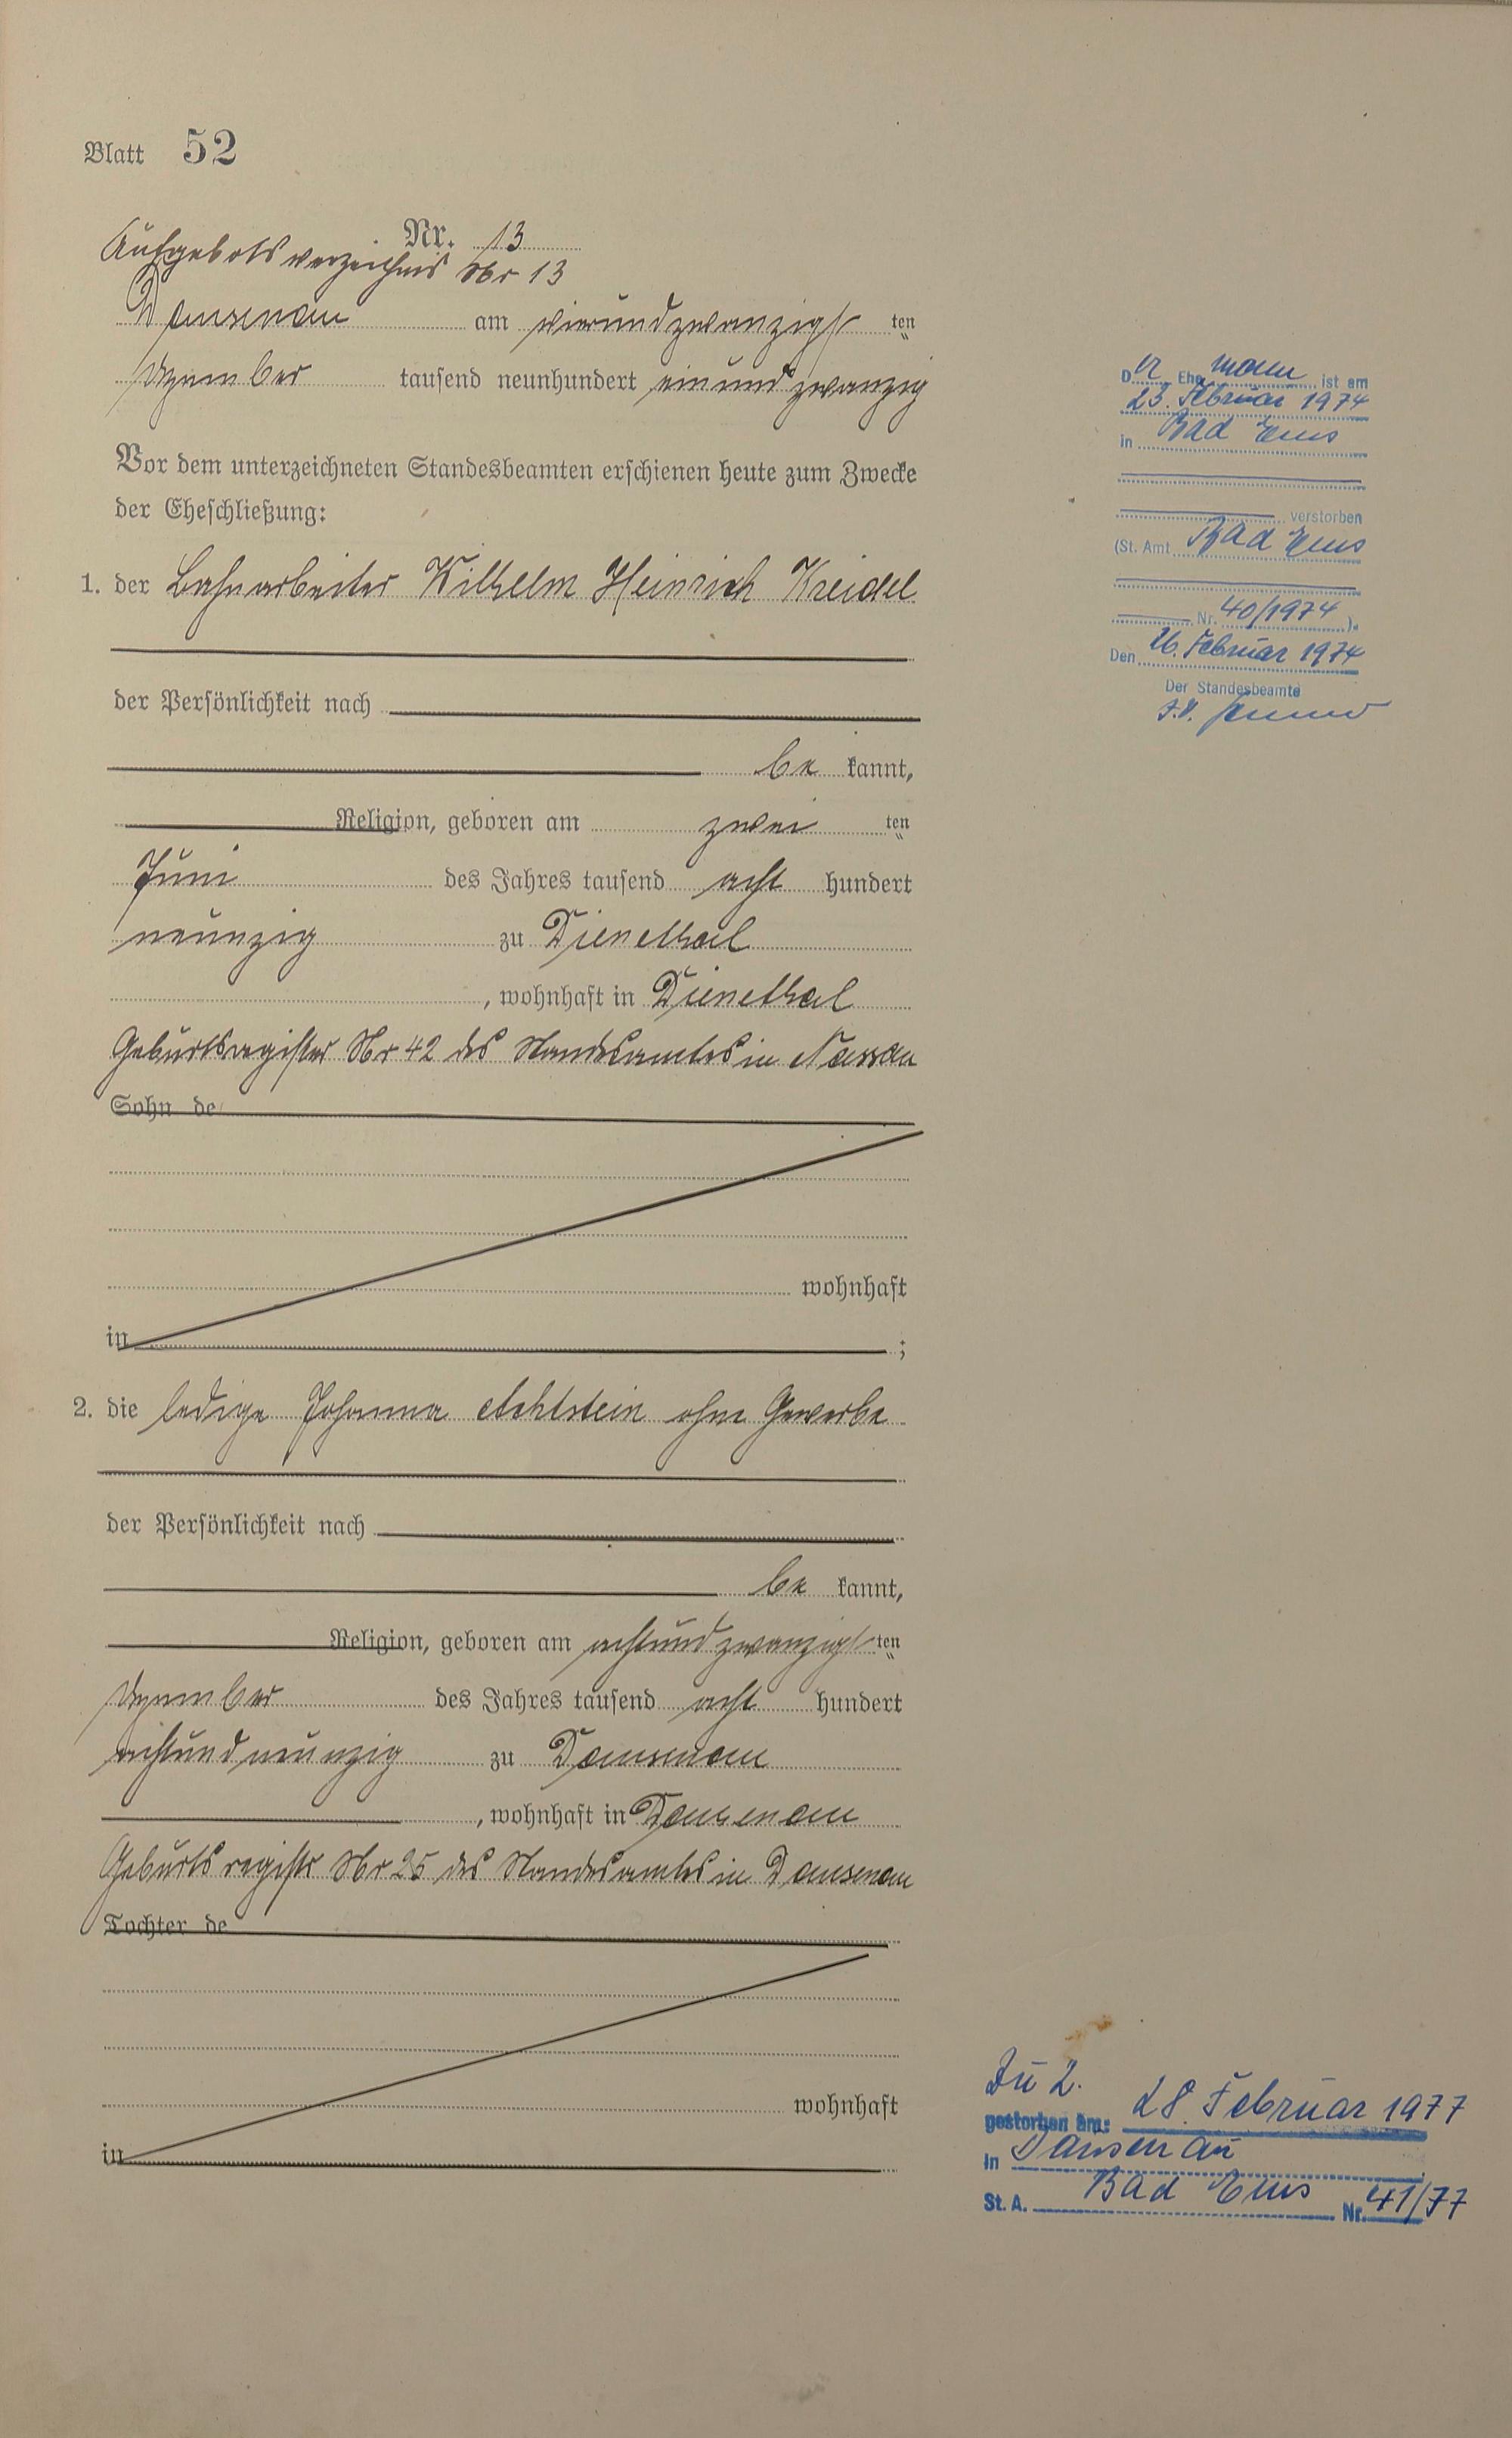 Blatt 52
Nr. 13
Aufgebotsverzeichnis Nr 13
Dausenau am vierundzwanzigsten
Dezember tausend neunhundert einundzwanzig
Vor dem unterzeichneten Standesbeamten erschienen heute zum Zwecke
der Eheschließung:
1. der Bahnarbeiter Wilhelm Heinrich Kreidel
der Persönlichkeit nach
be kannt,
Religion, geboren am zwei ten
Juni des Jahres tausend acht hundert
neunzig zu Dienethal
, wohnhaft in Dienethal
Geburtsregister Nr 42 des Standesamtes in Nassau
Sohn de
wohnhaft
in ;
2. die ledige Johanna Achtstein ohne Gewerbe
der Persönlichkeit nach
be kannt,
Religion, geboren am achtundzwanzigsten
Dezember des Jahres tausend acht hundert
achtundneunzig zu Dausenau
, wohnhaft in Dausenau
Geburtsregister Nr 25 des Standesamtes in Dausenau
Tochter de
wohnhaft
in
Der Ehemann ist am
23. Februar 1974
in Bad Ems
verstorben
(St. Amt Bad Ems
Nr. 40/1974 ).
Den 26. Februar 1974
Der Standesbeamte
Zu 2.
gestorben am: 28. Februar 1977
in Dausenau
St. A. Bad Ems Nr. 41/77